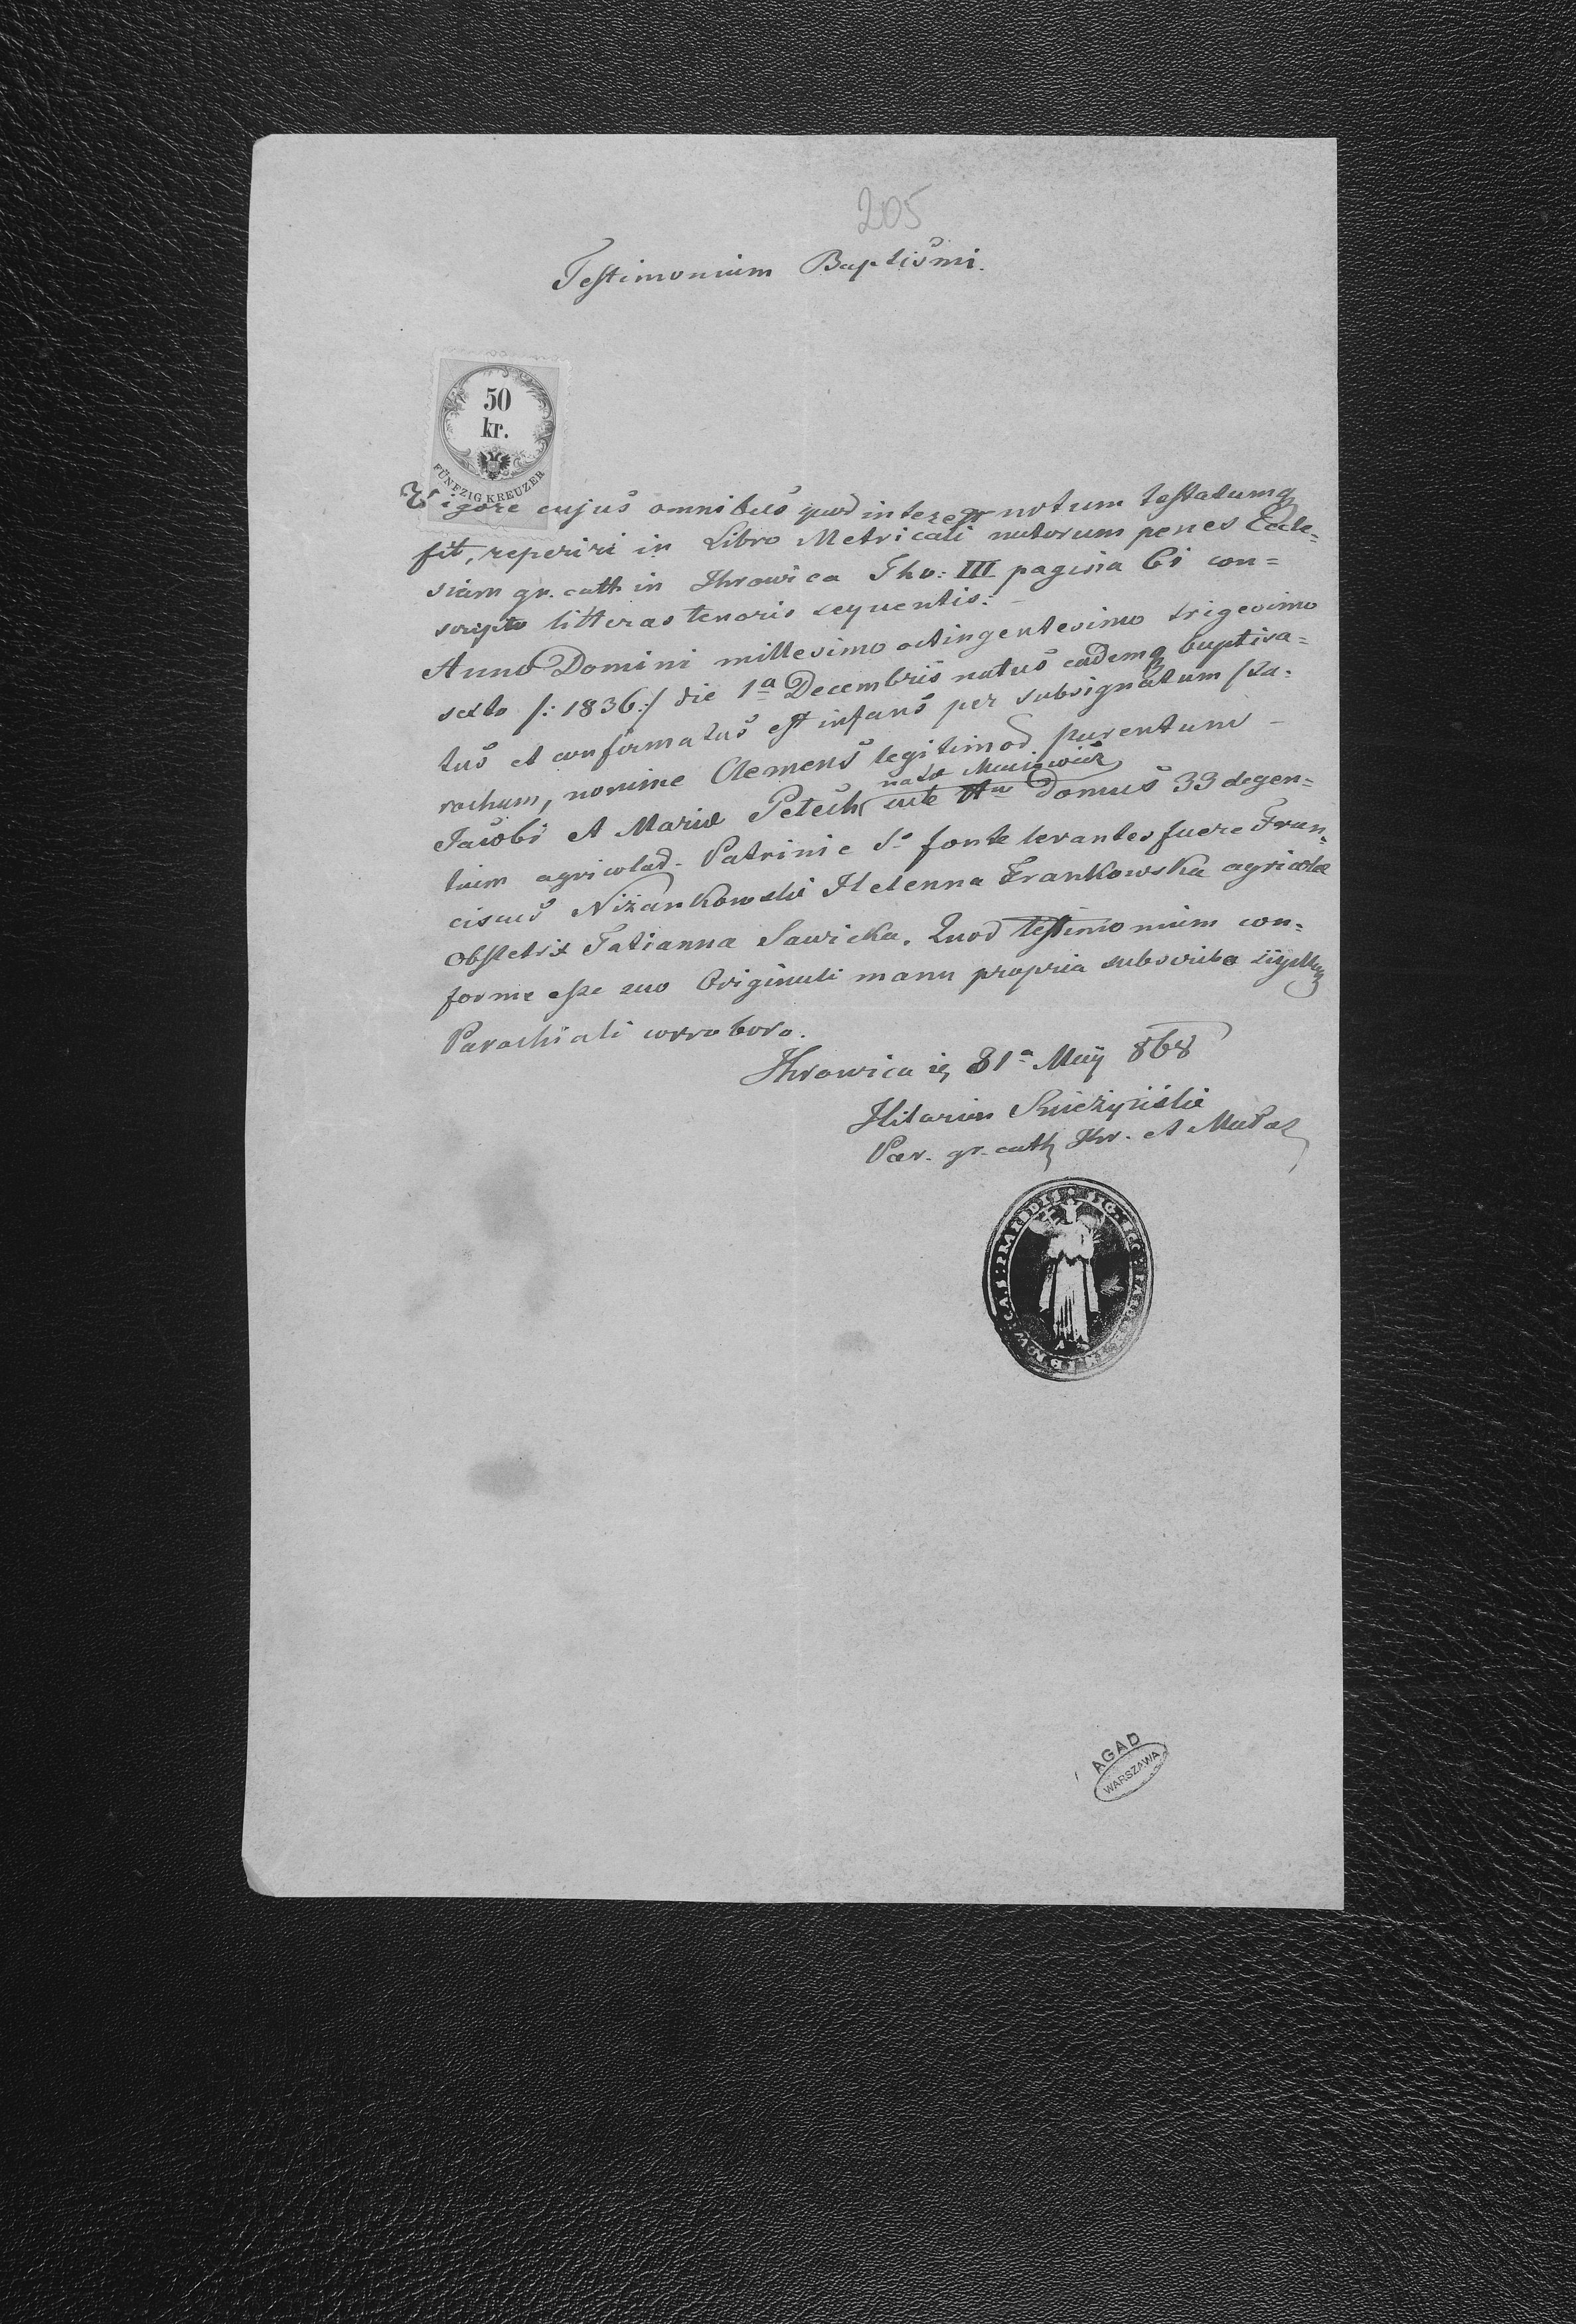 205
Testimonium Baptismi.
50
kr.
FÜNFZIG KREUZER
Vigore cujus omnibus quod interest notum testatumq
fit, reperiri in Libro Metricali natorum penes Eccle=
siam gr. cath in Ihrowica Tho: III pagina 61 con=
scripto litteras tenoris sequentis:
Anno Domini millesimo octingentesimo trigesimo
sexto /: 1836 :/ die 1a Decembris natus eademq baptisa=
tus et confirmatus est infans per subsignatum Pa=
rochum, nomine Clemens legitimor parentum
Jacobi et Mariæ Petech nata
sub Nro Domus 33 degen=
tium agricolar. Patrini e So fonte levantes fuere Fran=
ciscus Niżankowski Helenna Frankowska agricolæ
obstetrix Tatianna Sawicka. Quod testimonium con=
forme esse suo Originali manu propria subscribo
Parochiali corroboro.
Ihrowica 31a Maij 868
Hilarion Snieżyński
Par. gr. cath Ihr.
AGAD
WARSZAWA